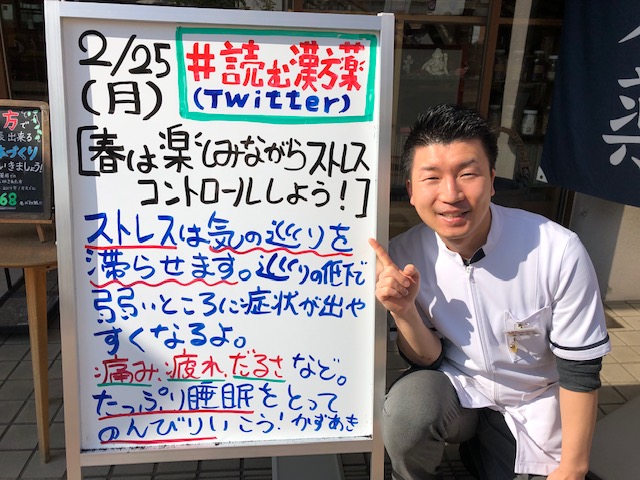 2/25
(月)
#読む漢方薬
(Twitter)
[春は楽しみながらストレス
コントロールしよう!]
ストレスは気の巡りを
滞らせます。巡りの低下で
弱いところに症状が出や
すくなるよ。
痛み、疲れ、だるさなど。
たっぷり睡眠をとって
のんびりいこう!かずあき
方で
出来る
づくり
いきましょう!
68
薬